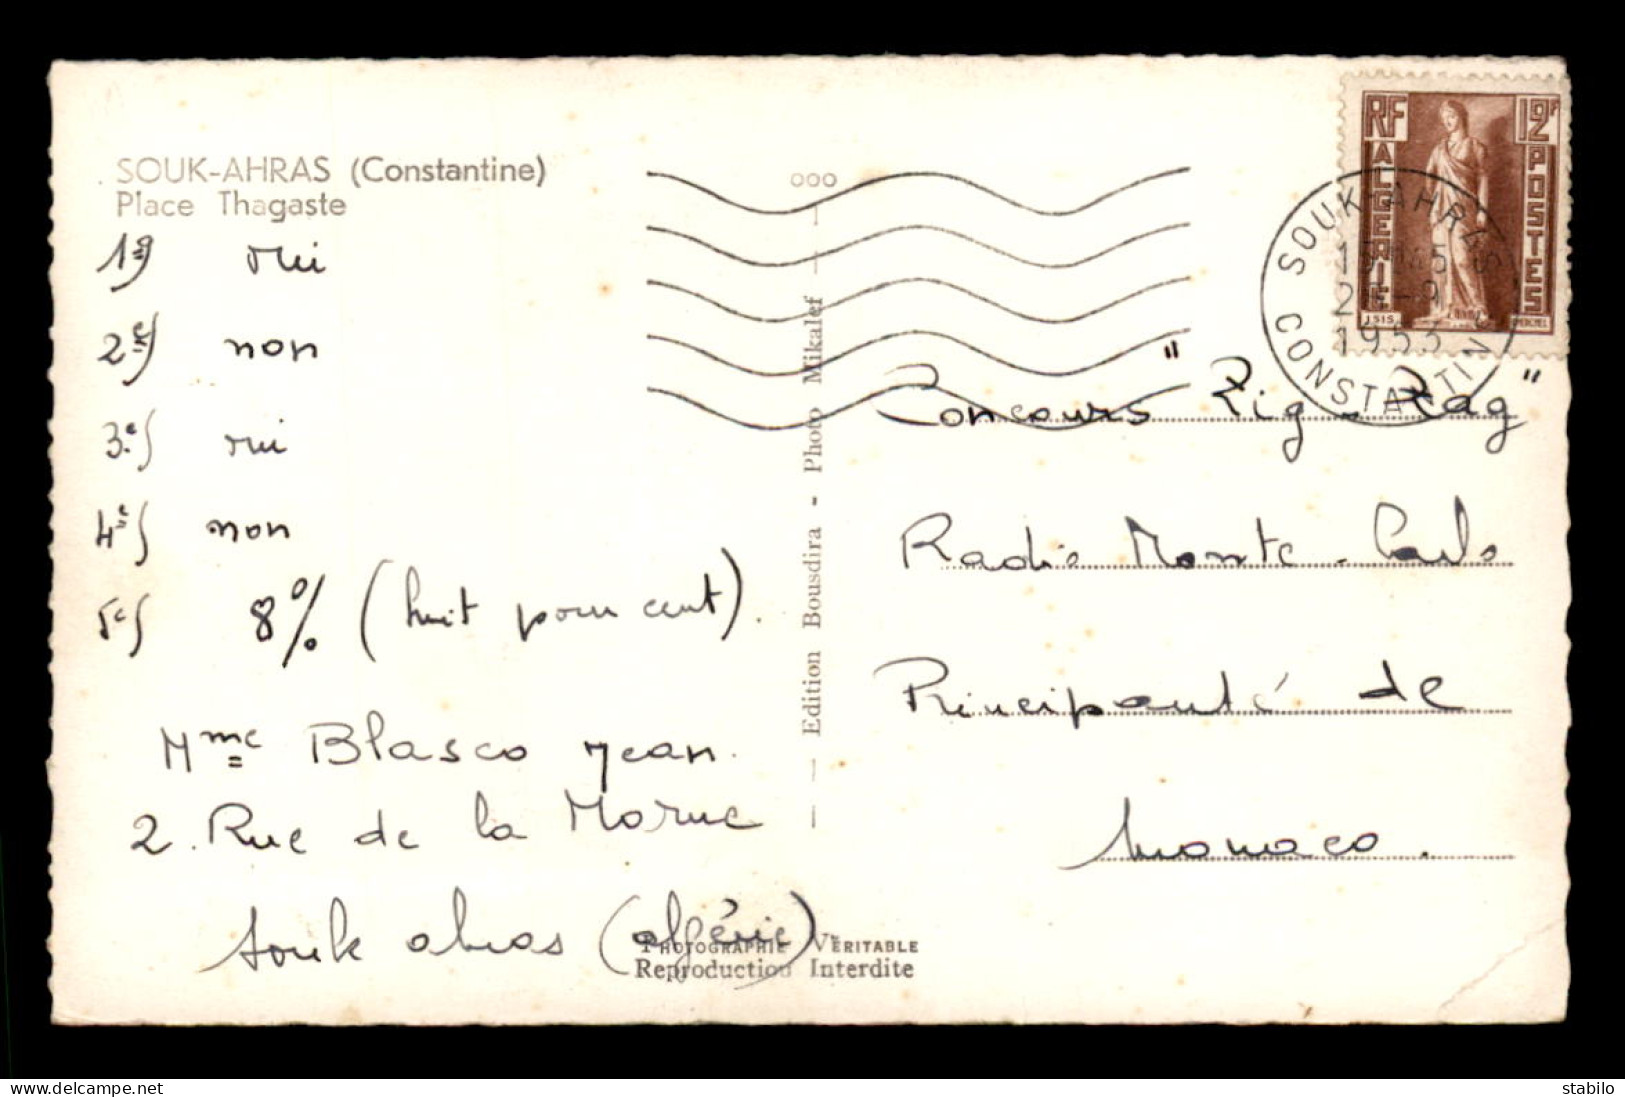 SOUK-AHRAS (Constantine)
Place Thagaste
1º) oui
2e) non
3e) oui
4e) non
5e) 8% (huit pour cent).
Mme Blasco Jean.
2. Rue de la Morue
Souk ahras (algérie)
Edition Bousdira - Photo Mikalef
PHOTOGRAPHIE VÉRITABLE
Reproduction Interdite
RF 12F
ALGERIE POSTES
ISIS
SOUK-AHRAS
1953
CONSTANTINE
Concours "Zig-Zag"
Radio Monte-Carlo
Principauté de
Monaco.
stabilo